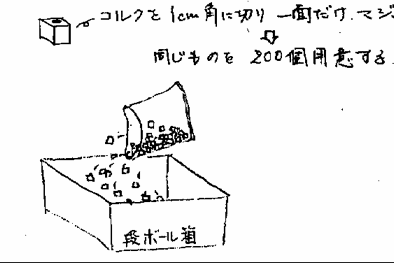 コルクを1cm角に切り 一面だけ、マジ
⇩
同じものを 200個用意する
段ボール箱